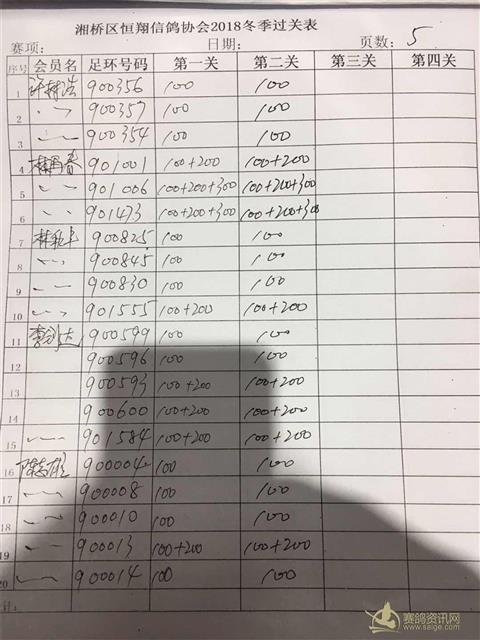 湘桥区恒翔信鸽协会2018冬季过关表
赛项： 日期： 页数： 5
序号 会员名 足环号码 第一关 第二关 第三关 第四关
1 900356 100 100
2 〃 900357 100 100
3 〃 900354 100 100
4 901001 100+200 100+200
5 〃 901006 100+200+300 100+200+300
6 〃 901473 100+200+300 100+200+300
7 900825 100 100
8 〃 900845 100 100
9 〃 900830 100 100
10 〃 901555 100+200 100+200
11 900599 100 100
12 900596 100 100
13 900593 100+200 100+200
14 900600 100+200 100+200
15 〃 901584 100+200 100+200
16 900004 100 100
17 〃 900008 100 100
18 〃 900010 100 100
19 〃 900013 100+200 100+200
20 〃 900014 100 100
计：
赛鸽资讯网
www.saige.com